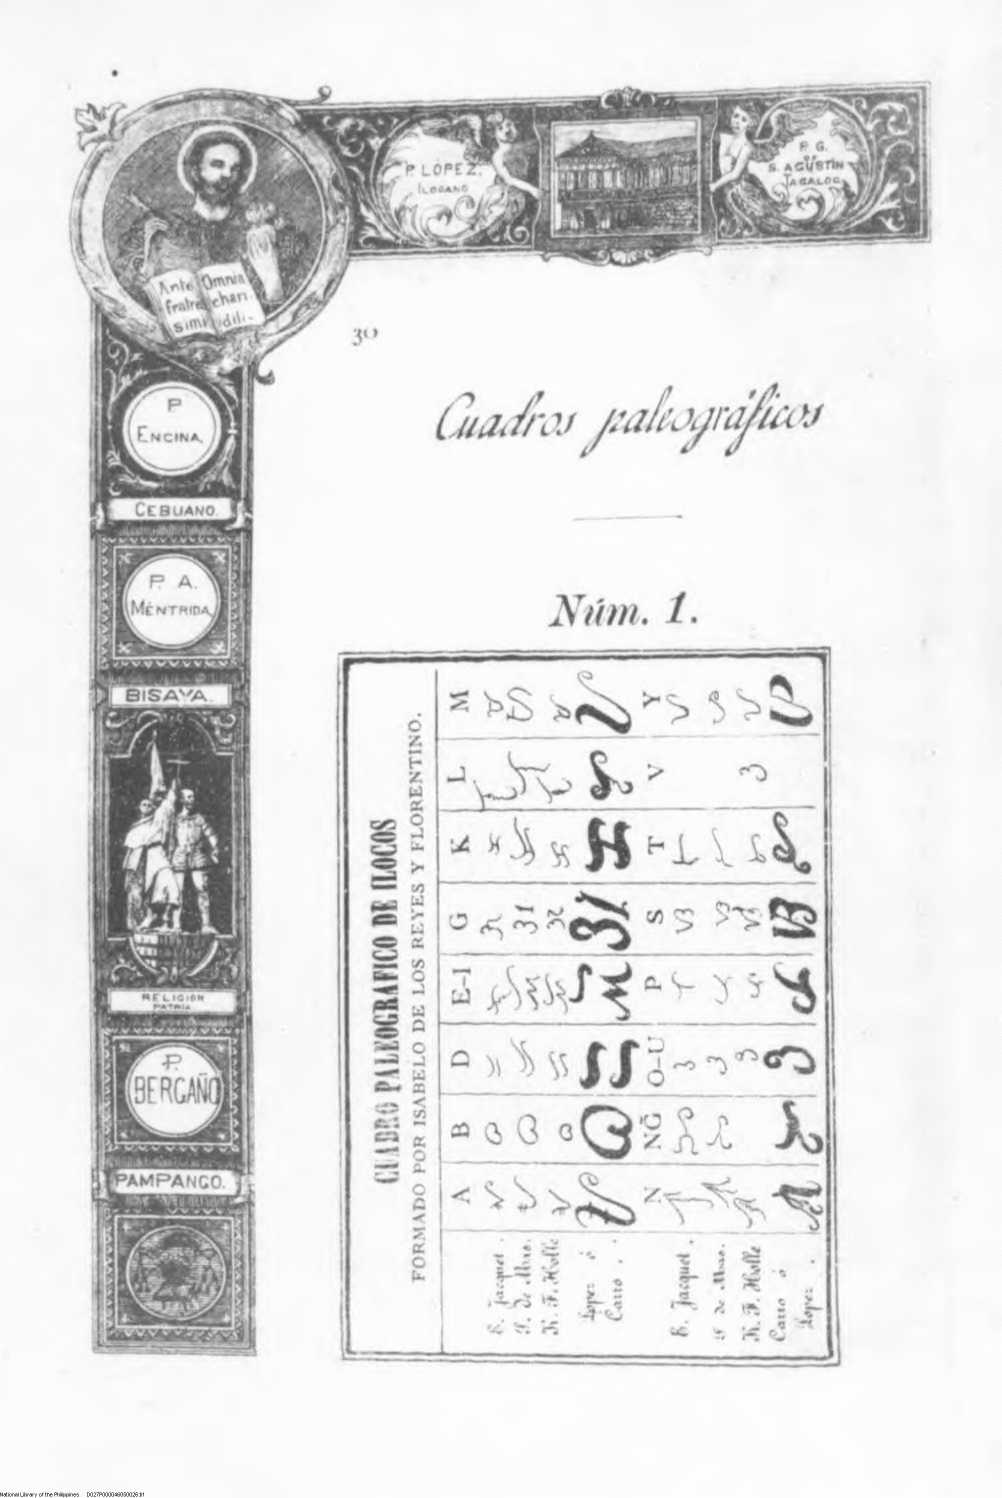 P. LÓPEZ.
ILOCANO
P. G.
DE
S. AGUSTÍN
TAGALOG
Ante Omnia
fratre chari
simi dili-
30
P.
ENCINA.
CEBUANO.
P. A.
MÉNTRIDA
BISAYA.
RELIGION
PATRIA
P.
BERGAÑO
PAMPANGO.
Cuadros paleográficos
Núm. 1.
CUADRO PALEOGRAFICO DE ILOCOS
FORMADO POR ISABELO DE LOS REYES Y FLORENTINO.
A B D E-I G K L M
E. Jacquet.
S. de Mas.
K. F. Holle
López ó
Carro.
N NG̃ O-U P S T V Y
E. Jacquet.
S de Mas.
K. F. Holle
Carro ó
López.
National Library of the Philippines D027P000046050026.tif